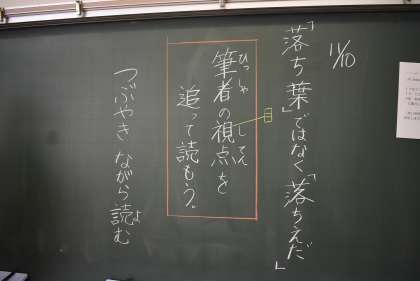 11/10
「落ち葉」ではなく「落ちえだ」
筆者の視点を
ひっしゃ
してん
目
追って読もう。
つぶやきながら読む
よ